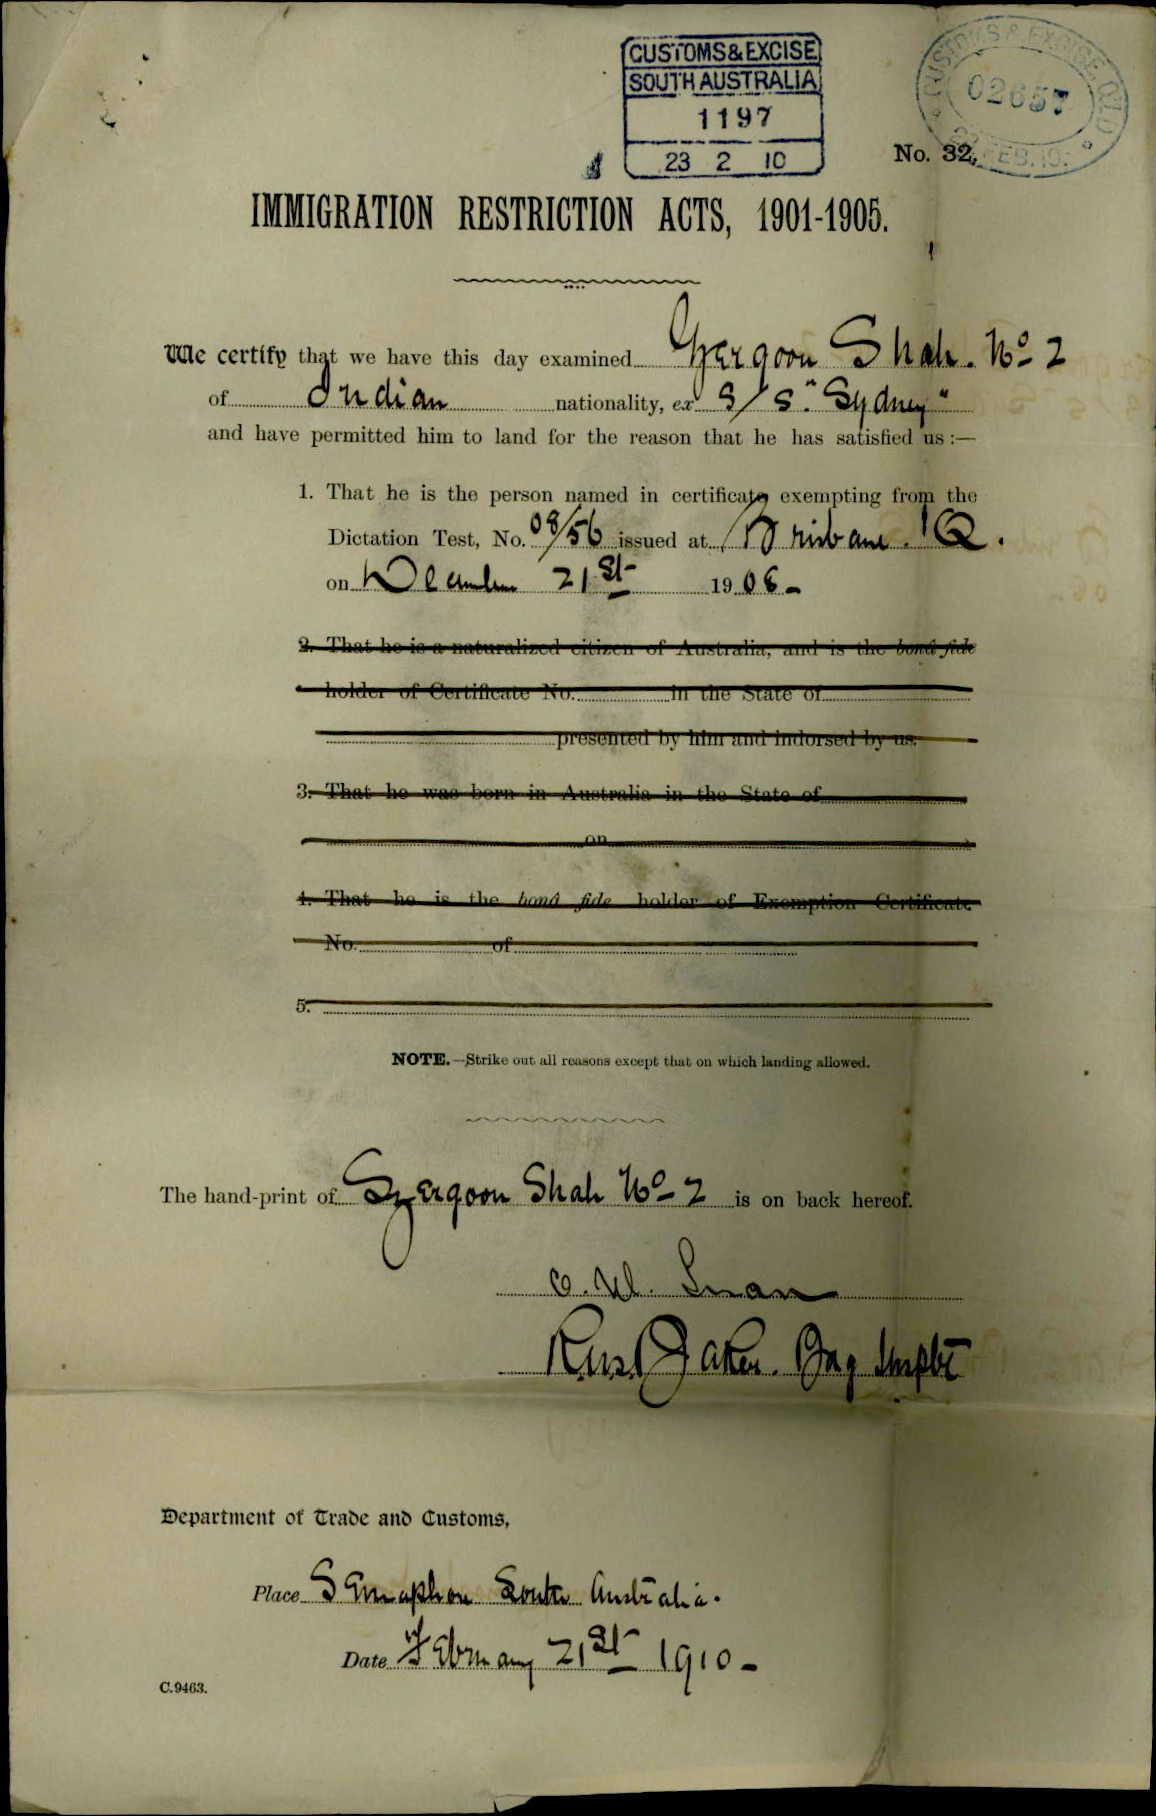 CUSTOMS & EXCISE
SOUTH AUSTRALIA
1197
23 2 10
CUSTOMS & EXCISE, QLD
02657
FEB. 10.
No. 32.
IMMIGRATION RESTRICTION ACTS, 1901-1905.
We certify that we have this day examined Gzergoon Shah. No 2
of Indian nationality, ex S/S. "Sydney"
and have permitted him to land for the reason that he has satisfied us :—
1. That he is the person named in certificate exempting from the
Dictation Test, No. 08/56 issued at Brisbane. Q.
on December 21st 1908-
2. That he is a naturalized citizen of Australia, and is the bonâ fide
holder of Certificate No. in the State of
presented by him and indorsed by us.
3. That he was born in Australia in the State of
on
4. That he is the bonâ fide holder of Exemption Certificate
No. of
5.
NOTE.—Strike out all reasons except that on which landing allowed.
The hand-print of Gzergoon Shah No 2 is on back hereof.
Baker. Insptr
Department of Trade and Customs,
Place Semaphore South Australia.
Date February 21st 1910-
C.9463.